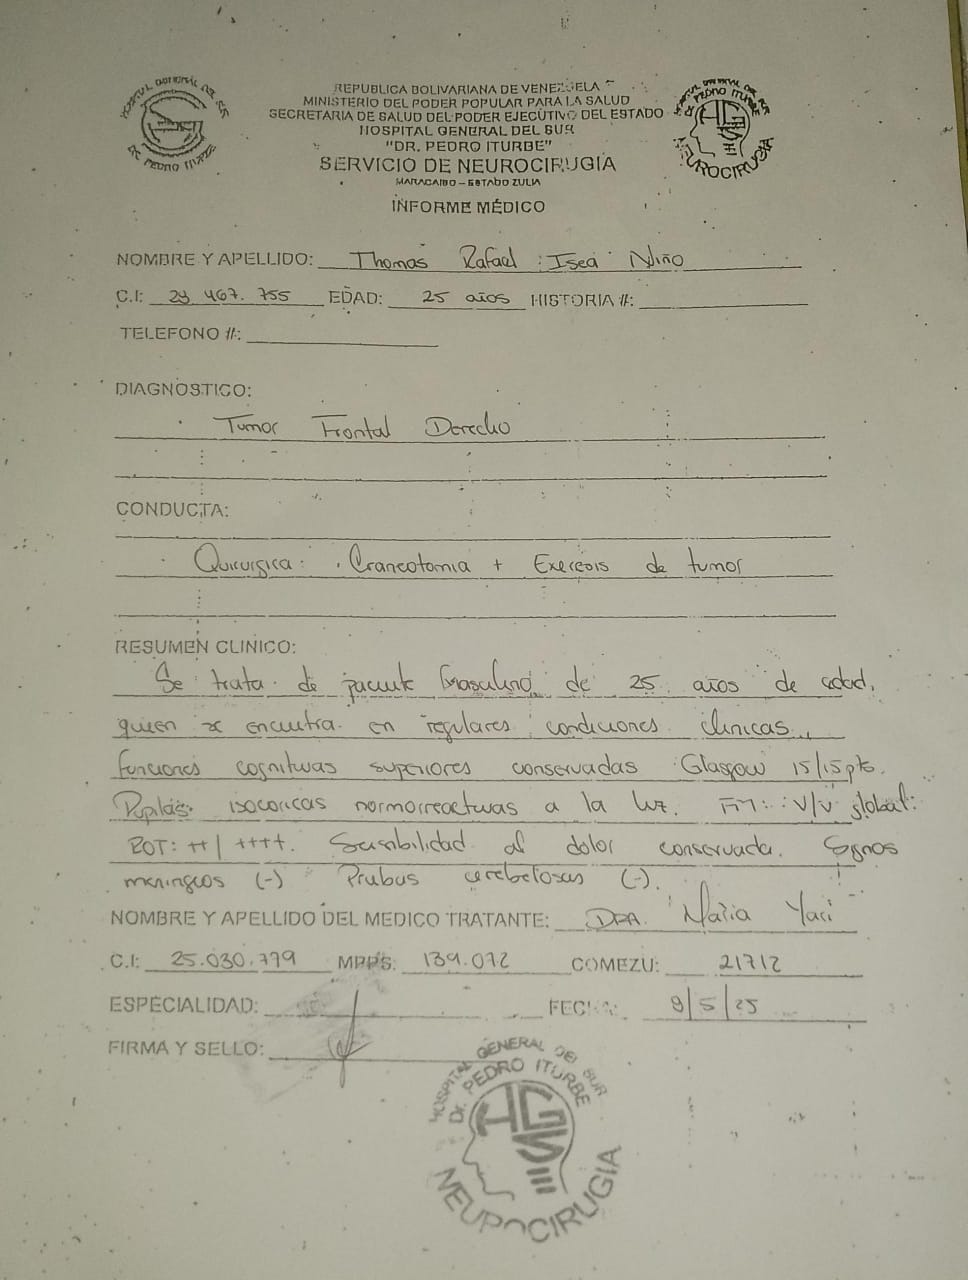 HOSPITAL GENERAL DEL SUR
Dr. PEDRO ITURBE
REPUBLICA BOLIVARIANA DE VENEZUELA
MINISTERIO DEL PODER POPULAR PARA LA SALUD
SECRETARIA DE SALUD DEL PODER EJECUTIVO DEL ESTADO
HOSPITAL GENERAL DEL SUR
"DR. PEDRO ITURBE"
SERVICIO DE NEUROCIRUGIA
MARACAIBO – ESTADO ZULIA
INFORME MÉDICO
HOSPITAL GENERAL DEL SUR
Dr. PEDRO ITURBE
HGS
NEUROCIRUGIA
NOMBRE Y APELLIDO: Thomas Rafael Isea Niño
C.I: 29.467.755 EDAD: 25 años HISTORIA #:
TELEFONO #:
DIAGNOSTICO:
Tumor Frontal Derecho
CONDUCTA:
Quirurgica: Craneotomia + Exeresis de tumor
RESUMEN CLINICO:
Se trata de paciente Masculino de 25 años de edad,
quien se encuentra en regulares condiciones clinicas,
funciones cognitivas superiores conservadas Glasgow 15/15pts.
Pupilas isocoricas normorreactivas a la luz. FM: V/V global.
ROT: ++/++++. Sensibilidad al dolor conservada. Signos
meningeos (-) Pruebas cerebelosas (-).
NOMBRE Y APELLIDO DEL MEDICO TRATANTE: DRA. Maria Yaci
C.I: 25.030.779 MPPS: 139.072 COMEZU: 21712
ESPECIALIDAD: FECHA: 9/5/25
FIRMA Y SELLO:
HOSPITAL GENERAL DEL SUR
Dr. PEDRO ITURBE
HGS
NEUROCIRUGIA